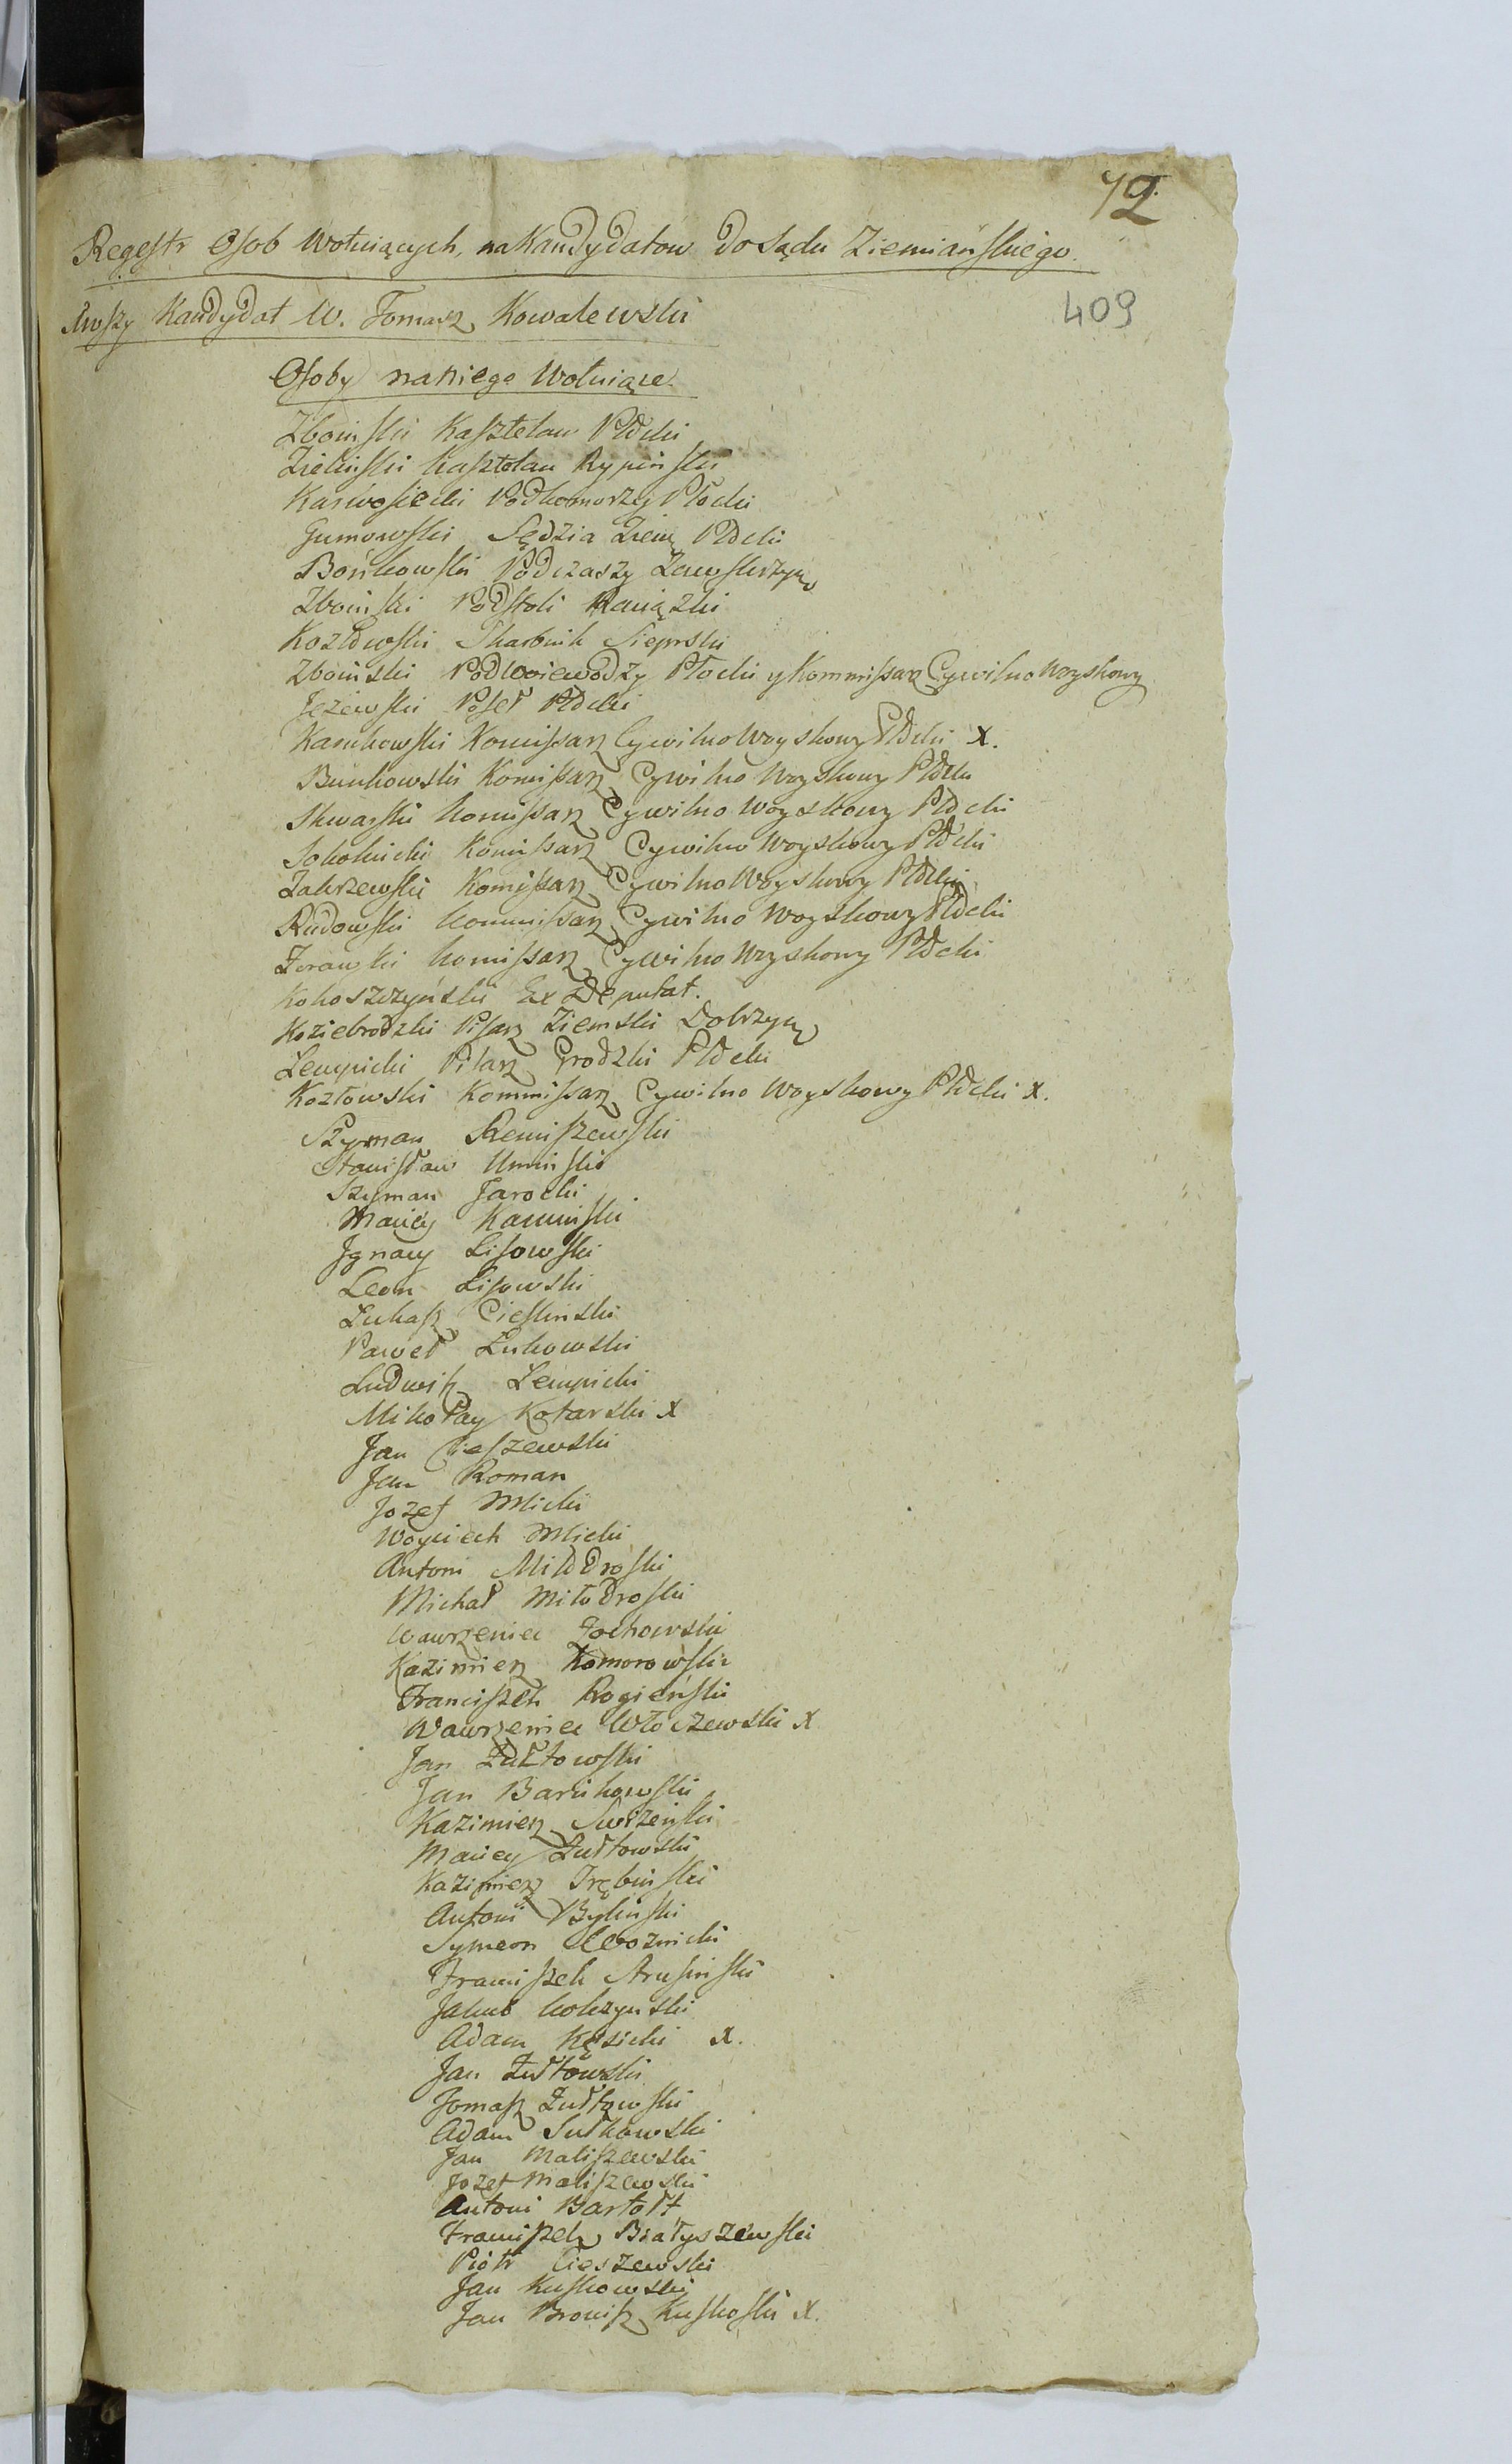 72
Regestr Osob Wotuiących, na Kandydatow do Sądu Ziemiańskiego.
409
Kandydat W. Tomasz Kowalewski
Osoby na niego Wotuiące.
Zboinski Kasztelan Płocki
Zielinski Kasztelan Rypinski
Karwosiecki Podkomorzy Płocki
Gumowski Sędzia Ziem. Płocki
Bońkowski Podczaszy Zawskrzyn
Zboinski Podstoli Raciązki
Kozłowski Skarbnik Sieprski
Zboinski Podwoiewodzy Płocki y Kommissarz Cywilno Woyskowy
Jeżewski Poseł Płocki
Karnkowski Komissarz Cywilno Woyskowy Płocki X.
Bunkowski Komissarz Cywilno Woyskowy Płocki
Skwarski Komissarz Cywilno Woyskowy Płocki
Sokolnicki Komissarz Cywilno Woyskowy Płocki
Zakrzewski Komyssarz Cywilno Woyskowy Płocki
Rudowski Kommissarz Cywilno Woyskowy Płocki
Zorawski Komissarz Cywilno Woyskowy Płocki
Kokoszczyński Ex Deputat.
Koziebrodzki Pisarz Ziemski Dobrzyn
Lempicki Pisarz Grodzki Płocki
Kozłowski Kommissarz Cywilno Woyskowy Płocki X.
Szyman Rzeniszewski
Stanisław Uminski
Szyman Jarocki
Maciey Kaminski
Jgnacy Lisowski
Leon Lisowski
Łukasz Cieslinski
Paweł Łukowski
Ludwik Lempicki
Mikołay Kotarski X
Jan Cieszewski
Jan Roman
Jozef Mlicki
Woyciech Mlicki
Antoni Miłodroski
Michał Miłodroski
Wawrzeniec Zochowski
Kazimierz Komorowski
Franciszek Rogieński
Wawrzeniec Włoczewski X
Jan Zułtowski
Jan Barcikowski
Kazimierz Swizeński
Maciey Zułtowski
Kazimierz Trębinski
Antoni Bylinski
Symeon Woznicki
Franciszek Strusinski
Jakub Kolczynski
Adam Kęsicki X.
Jan Zułtowski
Tomasz Zułtowski
Adam Sułkowski
Jan Maliszewski
Jozef Maliszewski
Antoni Bartołt
Franciszek Białyszewski
Piotr Cieszewski
Jan Kuskowski
Jan Bronisz Kuskoski X.